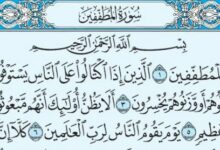 سُورَةُ المُطَفِّفِينَ
بِسْمِ ٱللَّهِ ٱلرَّحْمَٰنِ ٱلرَّحِيمِ
مُطَفِّفِينَ ١ ٱلَّذِينَ إِذَا ٱكْتَالُوا۟ عَلَى ٱلنَّاسِ يَسْتَوْفُو
هُمْ أَو وَّزَنُوهُمْ يُخْسِرُونَ ٣ أَلَا يَظُنُّ أُو۟لَٰٓئِكَ أَنَّهُم مَّبْعُوثُ
ظِيمٍ ٥ يَوْمَ يَقُومُ ٱلنَّاسُ لِرَبِّ ٱلْعَٰلَمِينَ ٦ كَلَّآ إِنَّ